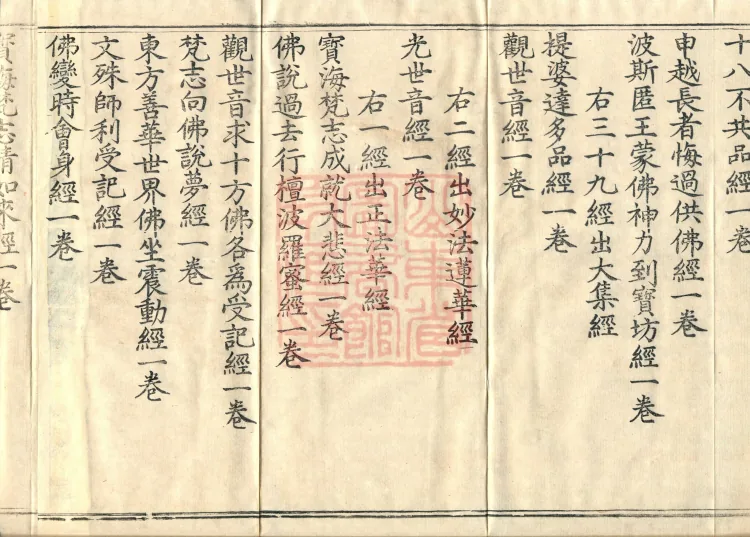 十八不共品經一卷
申越長者悔過供佛經一卷
波斯匿王蒙佛神力到寶坊經一卷
右三十九經出大集經
提婆達多品經一卷
觀世音經一卷
右二經出妙法蓮華經
光世音經一卷
右一經出正法華經
寶海梵志成就大悲經一卷
佛說過去行檀波羅蜜經一卷
觀世音求十方佛各爲受記經一卷
梵志向佛說夢經一卷
東方善華世界佛坐震動經一卷
文殊師利受記經一卷
佛變時會身經一卷
寶海梵志請如來經一卷